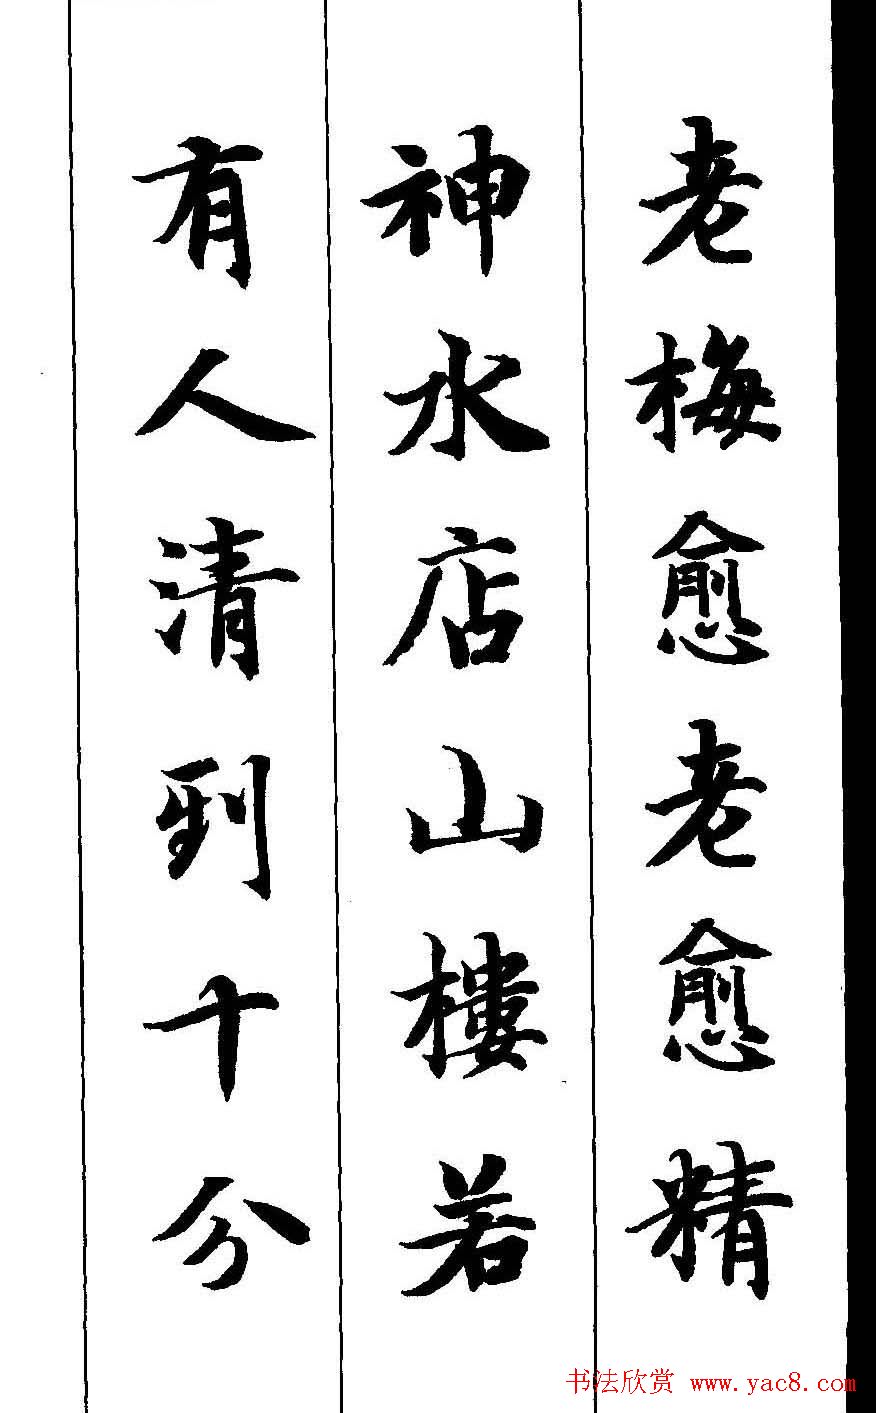 老梅愈老愈精
神水店山樓若
有人清到十分
书法欣赏 www.yac8.com